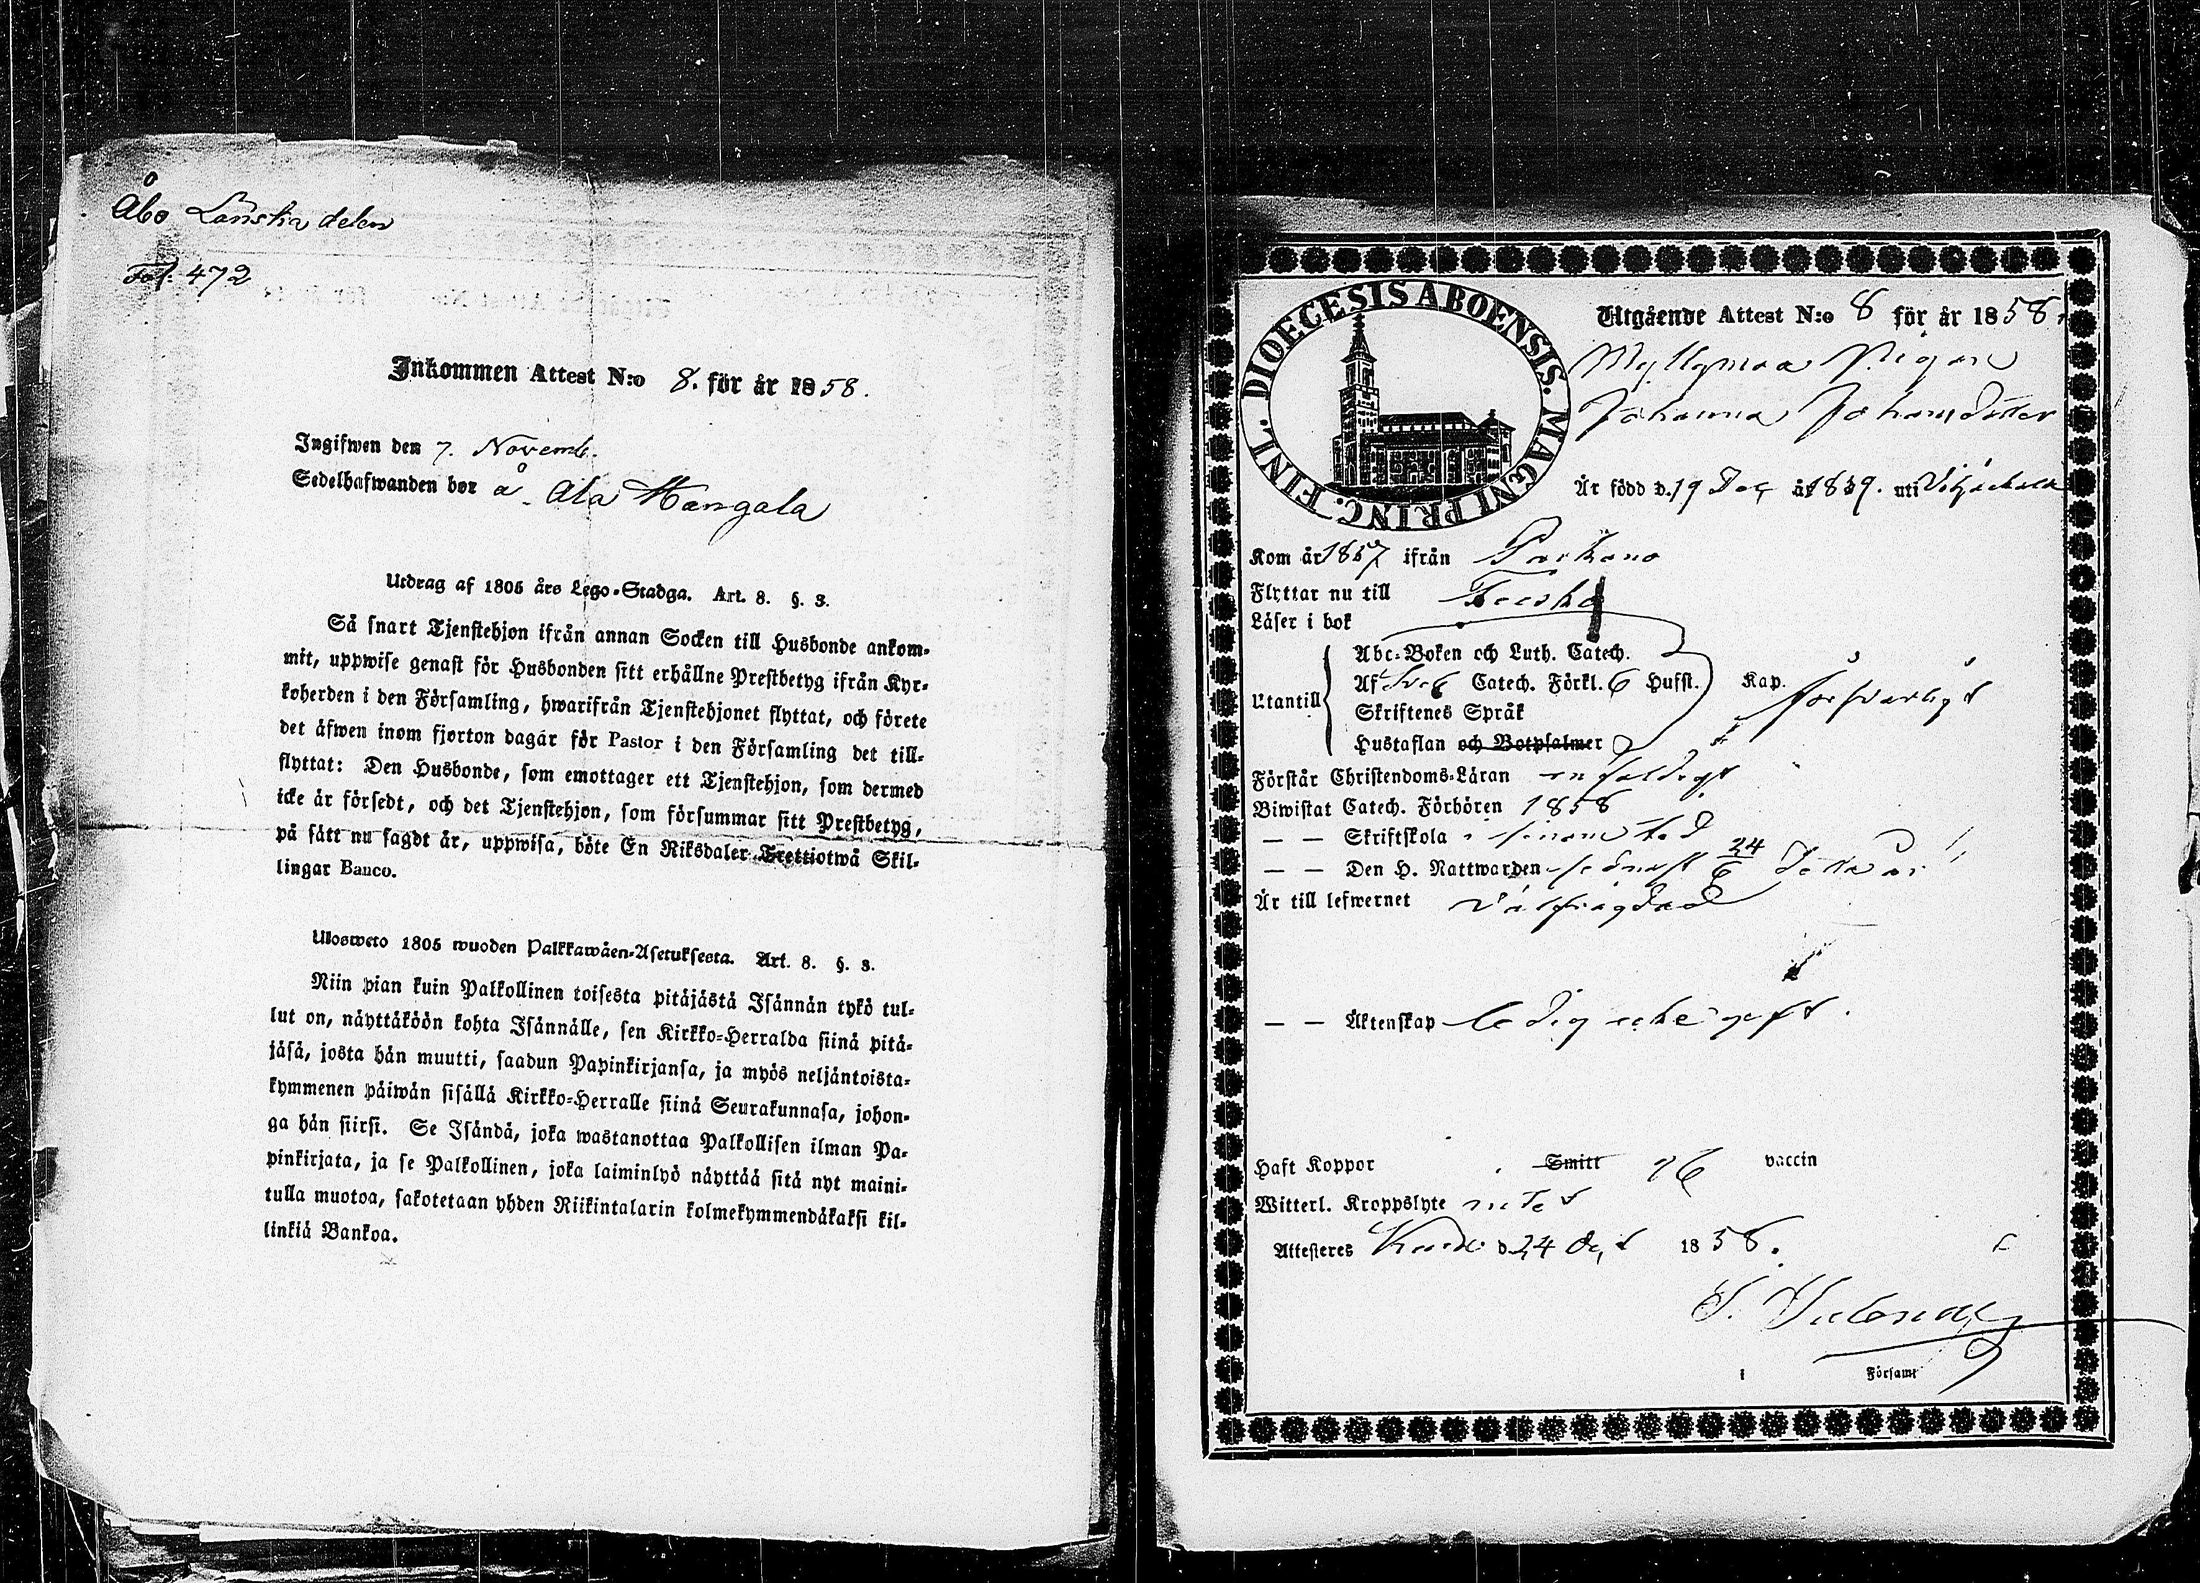 Åbo Länska delen
Fol: 472
Inkommen Attest N:o 8. för år 1858.
Ingifwen den 7. Novemb.
Sedelhafwanden bor å Ala Hangala
Utdrag af 1805 års Lego-Stadga. Art. 8. §. 3.
Så snart Tjenstehjon ifrån annan Socken till Husbonde ankom-
mit, uppwise genast för Husbonden sitt erhållne Prestbetyg ifrån Kyr-
koherden i den Församling, hwarifrån Tjenstehjonet flyttat, och förete
det äfwen inom fjorton dagar för Pastor i den Församling det till-
flyttat: Den Husbonde, som emottager ett Tjenstehjon, som dermed
icke är försedt, och det Tjenstehjon, som försummar sitt Prestbetyg,
på sätt nu sagdt är, uppwisa, böte En Riksdaler Trettiotwå Skil-
lingar Banco.
Ulosweto 1805 wuoden Palkkawäen-Asetuksesta. Art. 8. §. 3.
Niin pian kuin Palkollinen toisesta pitäjästä Isännän tykö tul-
lut on, näyttäköön kohta Isännälle, sen Kirkko-Herralda siinä pitä-
jäsä, josta hän muutti, saadun Papinkirjansa, ja myös neljäntoista-
kymmenen päiwän sisällä Kirkko-Herralle siinä Seurakunnasa, johon-
ga hän siirsi. Se Isändä, joka wastanottaa Palkollisen ilman Pa-
pinkirjata, ja se Palkollinen, joka laiminlyö näyttää sitä nyt maini-
tulla muotoa, sakotetaan yhden Riikintalarin kolmekymmendäkaksi kil-
linkiä Bankoa.
DIOECESIS ABOENSIS. MAGNI PRINC. FINL.
Utgående Attest N:o 8 för år 1858.
Myllymaa Pigan
Johanna Johansdotter
Är född d. 19 Dec år 1839. uti
Kom år 1857 ifrån Parkano
Flyttar nu till
Läser i bok
Utantill
Abc-Boken och Luth. Catech.
Af Sveb Catech. Förkl. 6 Hufst. Kap. försvarligt
Skriftenes Språk
Hustaflan och Botpsalmer
Förstår Christendoms-Läran enfaldigt
Biwistat Catech. Förhören 1858
— — Skriftskola i
— — Den H. Nattwarden sednast 24/6 detta år
Är till lefwernet välfrägdad
— — Äktenskap ledig icke gift.
Haft Koppor Smitt vaccin
Witterl. Kroppslyte intet
Attesteres d. 24 Oct 1858.
i Församl